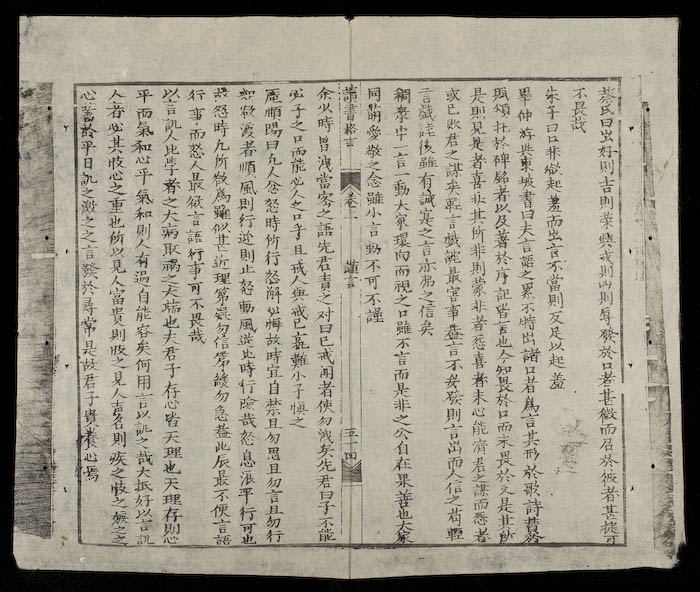 蔡氏曰出好則吉則榮興戎則凶則辱發於口者甚微而召於彼者甚捷可
不畏哉
朱子曰口非欲起羞而出言不當則反足以起羞
畢仲游與東坡書曰夫言語之累不特出諸口者為言其形於歌詩贊於
賦頌托於碑銘者以及著於序記皆言也今知畏於口而未畏於文是其所
是則見是者喜非其所非則蒙非者怨喜者未心能濟君之謀而怨者
或已敗君之謀矣輕言戲謔最害事蓋言不妄發則言出而人信之苟輕
言戲謔後雖有誠寔之言亦弗之信矣
稠衆中一言一動大衆環向而視之口雖不言而是非之公自在果善也大衆
同萌愛敬之念雖小言動不可不謹
讀書格言 卷二 謹言 五十四
余少時曽洩當密之語先君責之对曰已戒聞者使勿洩矣先君曰子不能
必子之口而能必人之口乎且戒人與戒己孰難小子慎之
范順陽曰凡人忿怒時所行怒解必悔故時宜自禁且勿思且勿言且勿行
如欲渡者順風則行逆則止怒動風逆此時行險哉怒息浪平行可也
盖怒時凡所欲為雖似甚近理第混勿信第緩勿急蓋此辰最不便言語
行事而怒人最欲言語行事可不畏哉
以言訊人此學者之大病取禍之大端也夫君子存心皆天理也天理存則心
平而氣和心平氣和則人有過自能容矣何用言以訊之哉大抵好以言訊
人者必其忮心之重也所以見人富貴則忮之見人吉名則疾之忮之嫉之之
心蓄於平日訊之激之之言發於尋常是故君子貴養心焉